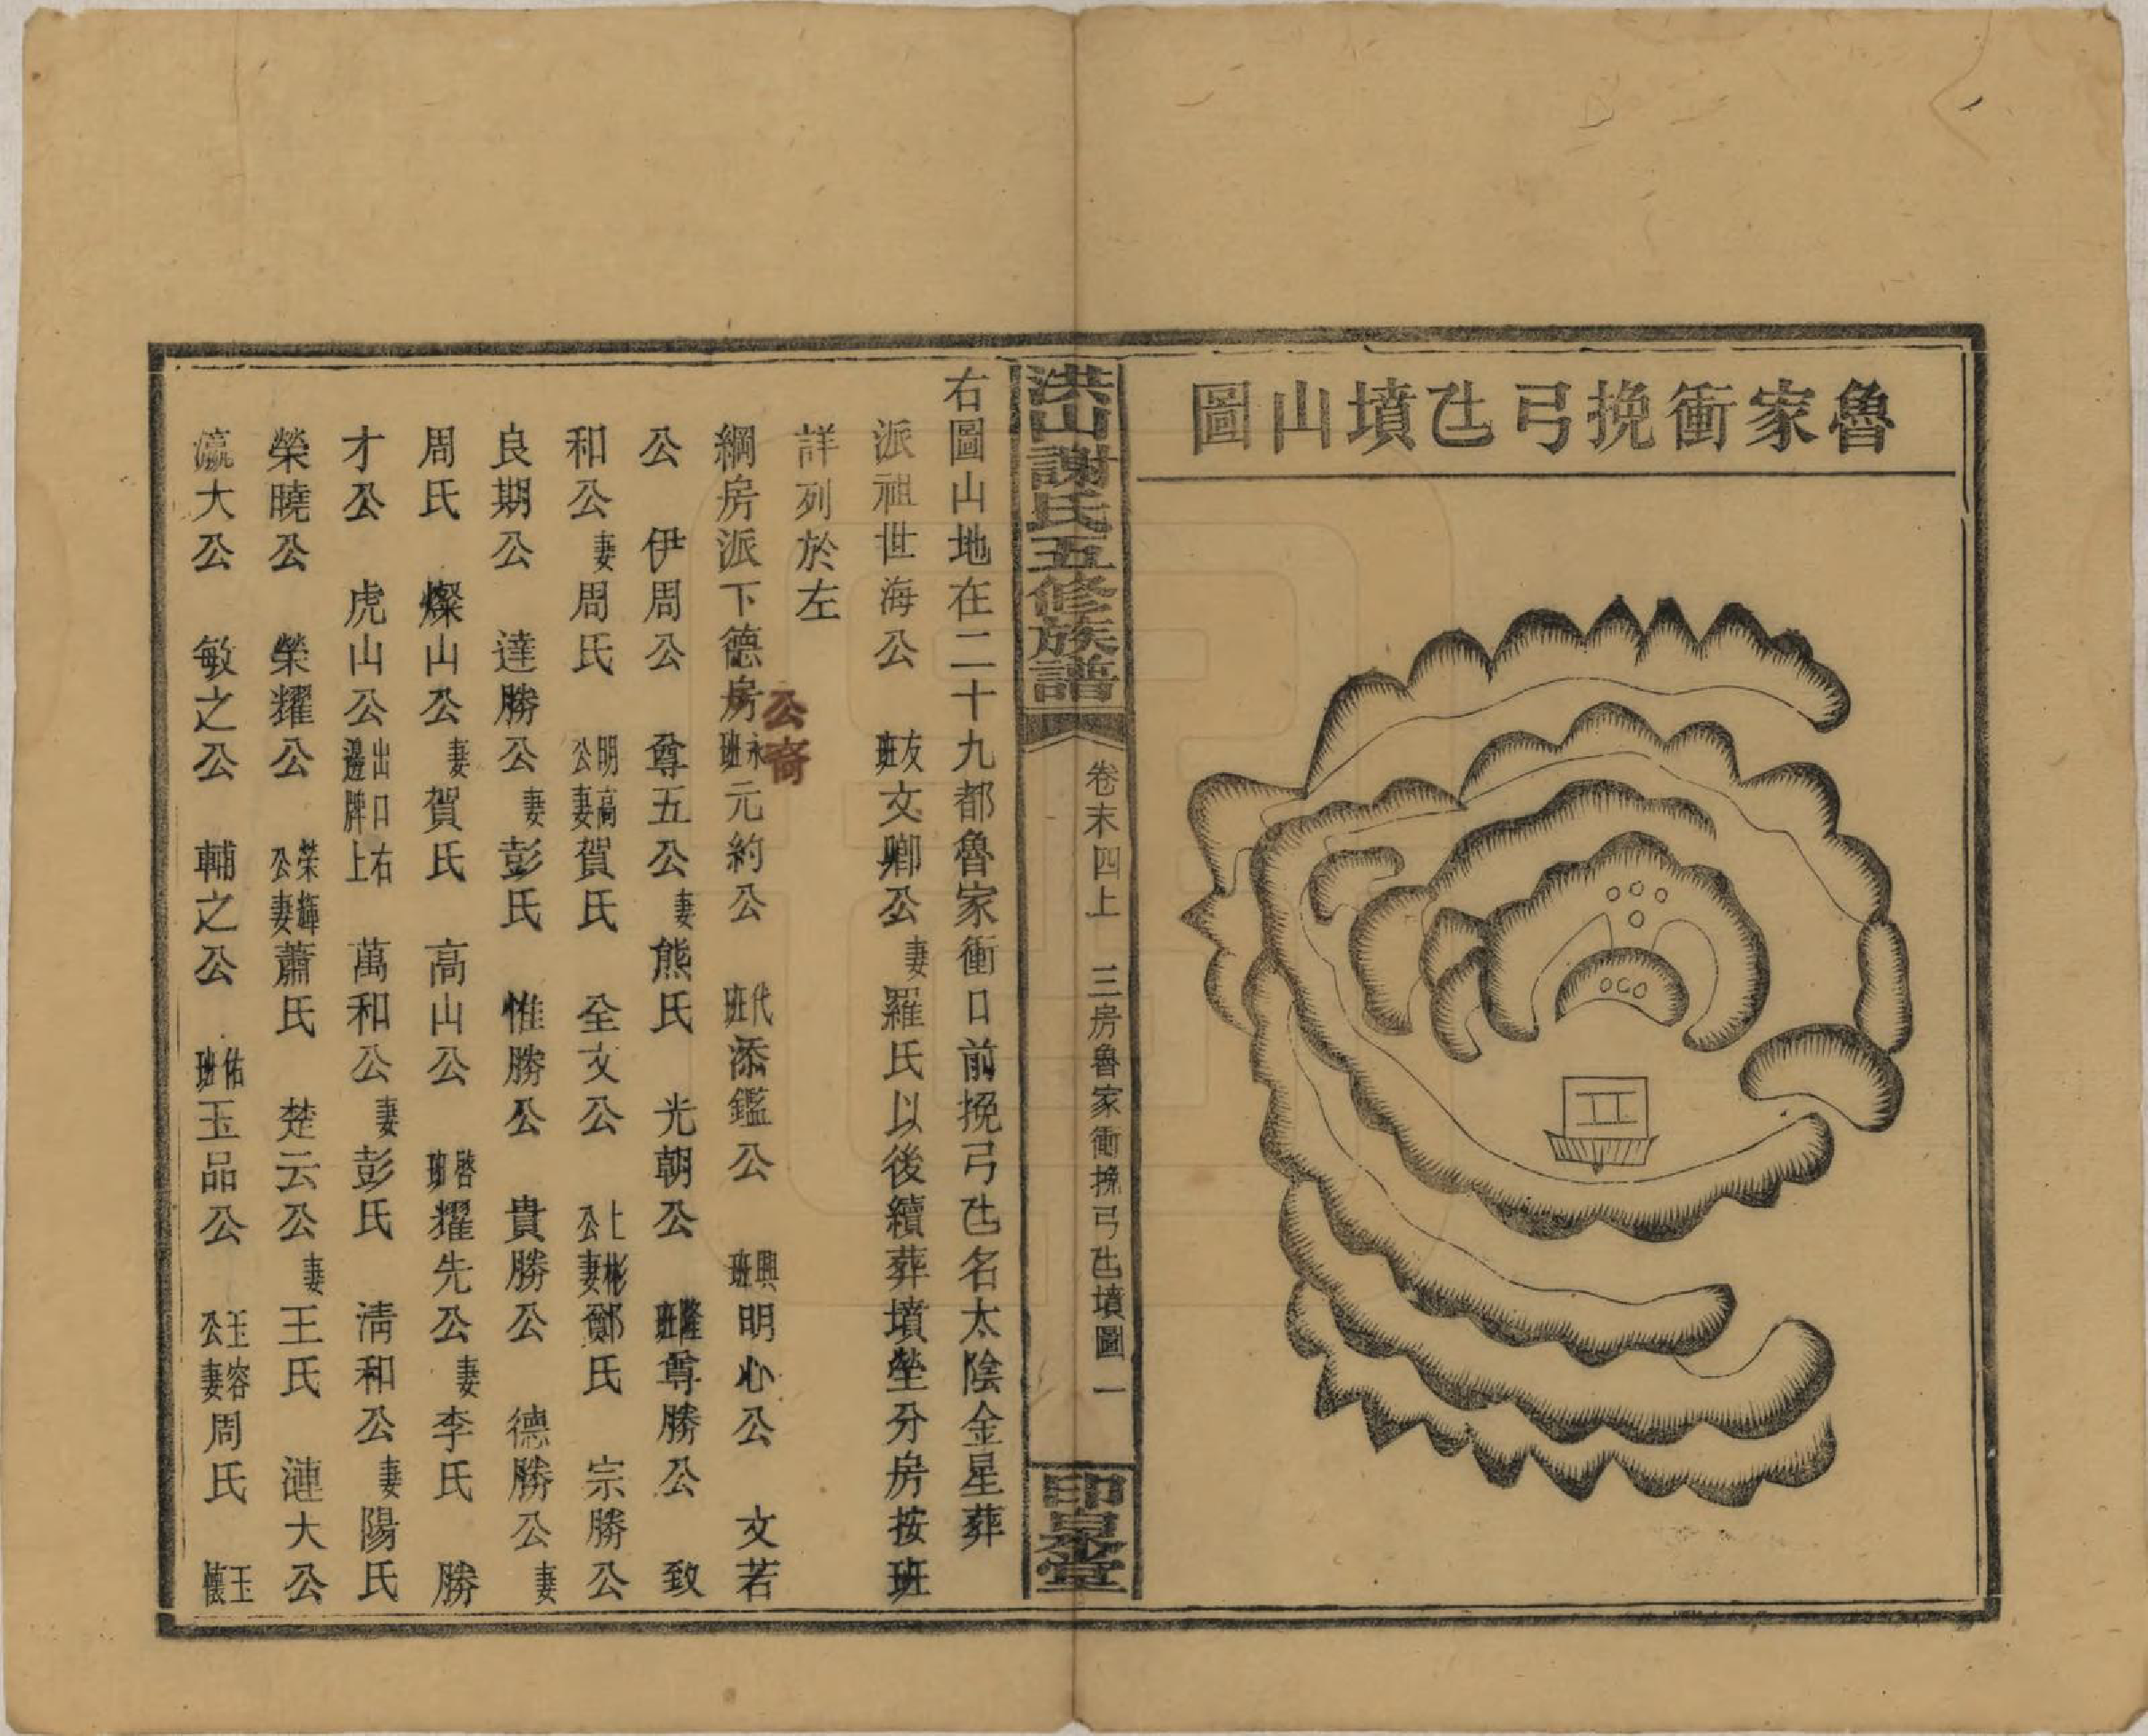 魯家衝挽弓𠰥墳山圖
洪山謝氏五修族譜
卷末四上 三房魯家衝挽弓𠰥墳圖 一
印泉堂
右圖山地在二十九都魯家衝口前挽弓𠰥名太陰金星葬
派祖世海公 友班文卿公妻羅氏以後續葬墳塋分房按班
詳列於左
公裔
綱房派下德房永班元約公 代班添鑑公 興班明心公 文若
公 伊周公 尊五公妻熊氏 光朝公 隆班尊勝公 致
和公妻周氏 明高公妻賀氏 全文公 上彬公妻鄭氏 宗勝公
良期公 達勝公妻彭氏 惟勝公 貴勝公 德勝公妻
周氏 燦山公妻賀氏 高山公 啓班耀先公妻李氏 勝
才公 虎山公出口右邊牌上 萬和公妻彭氏 清和公妻陽氏
榮曉公 榮耀公 榮輝公妻蕭氏 楚云公妻王氏 漣大公
瀛大公 敏之公 輔之公 佑班玉品公 玉容公妻周氏 玉懷